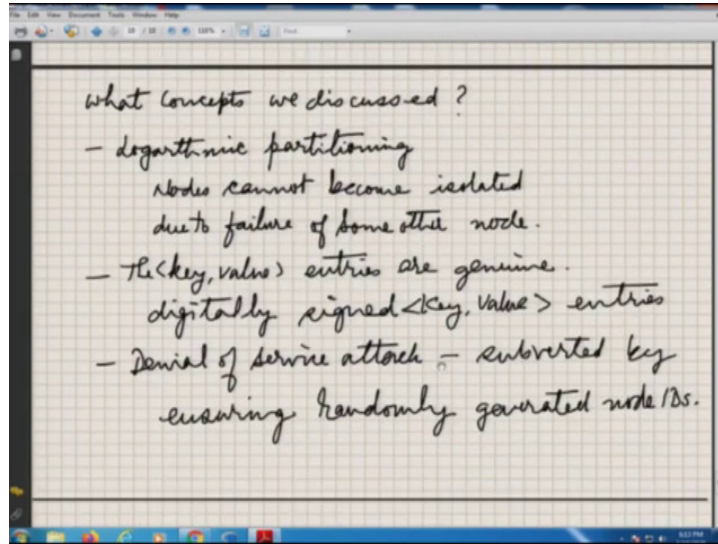 File Edit View Document Tools Window Help
19 / 19 110% Find
what concepts we discussed ?
- Logarthmic partitioning
Nodes cannot become isolated
due to failure of some other node.
- The <key, value> entries are genuine.
digitally signed <key, value> entries
- Denial of service attack - subverted by
ensuring randomly generated node IDs.